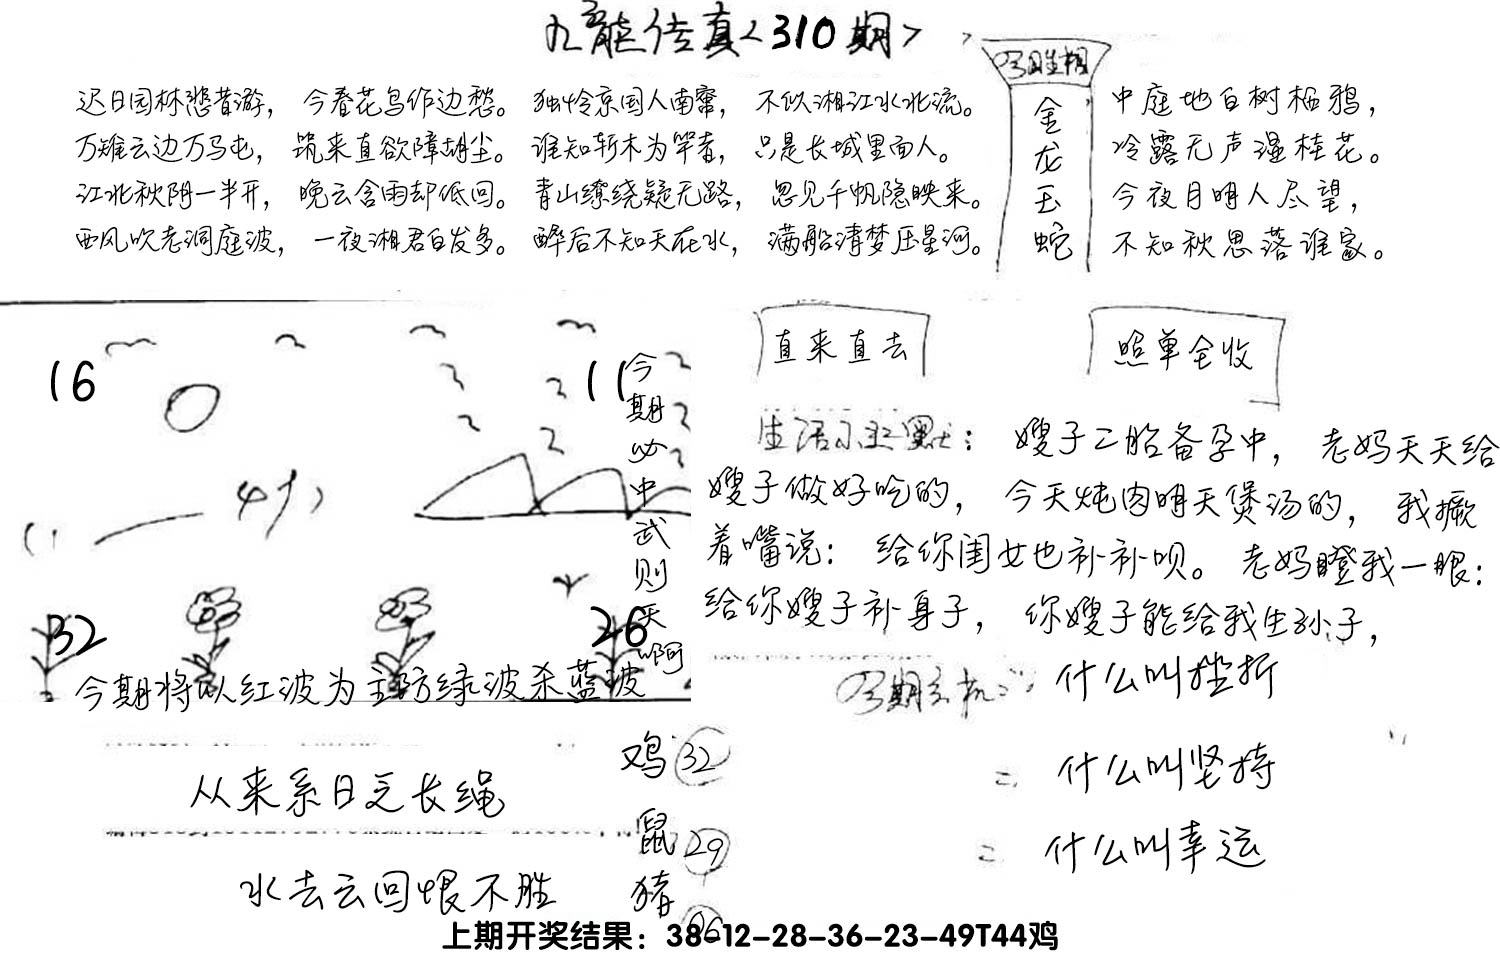 九龙传真<310期>
迟日园林悲昔游，今春花鸟作边愁。独怜京国人南窜，不似湘江水北流。
万雉云边万马屯，筑来直欲障胡尘。谁知斩木为竿者，只是长城里面人。
江北秋阴一半开，晚云含雨却低回。青山缭绕疑无路，忽见千帆隐映来。
西风吹老洞庭波，一夜湘君白发多。醉后不知天在水，满船清梦压星河。
金龙玉蛇
中庭地白树栖鸦，
冷露无声湿桂花。
今夜月明人尽望，
不知秋思落谁家。
16
11
32
26
今期必中武则天啊
今期将以红波为主防绿波杀蓝波
直来直去
照单全收
生活 默：嫂子二胎备孕中，老妈天天给
嫂子做好吃的，今天炖肉明天煲汤的，我撅
着嘴说：给你闺女也补补呗。老妈瞪我一眼：
给你嫂子补身子，你嫂子能给我生孙子，
什么叫挫折
什么叫坚持
什么叫幸运
从来系日乏长绳
水去云回恨不胜
鸡 32
鼠 29
猪 06
上期开奖结果：38-12-28-36-23-49T44鸡